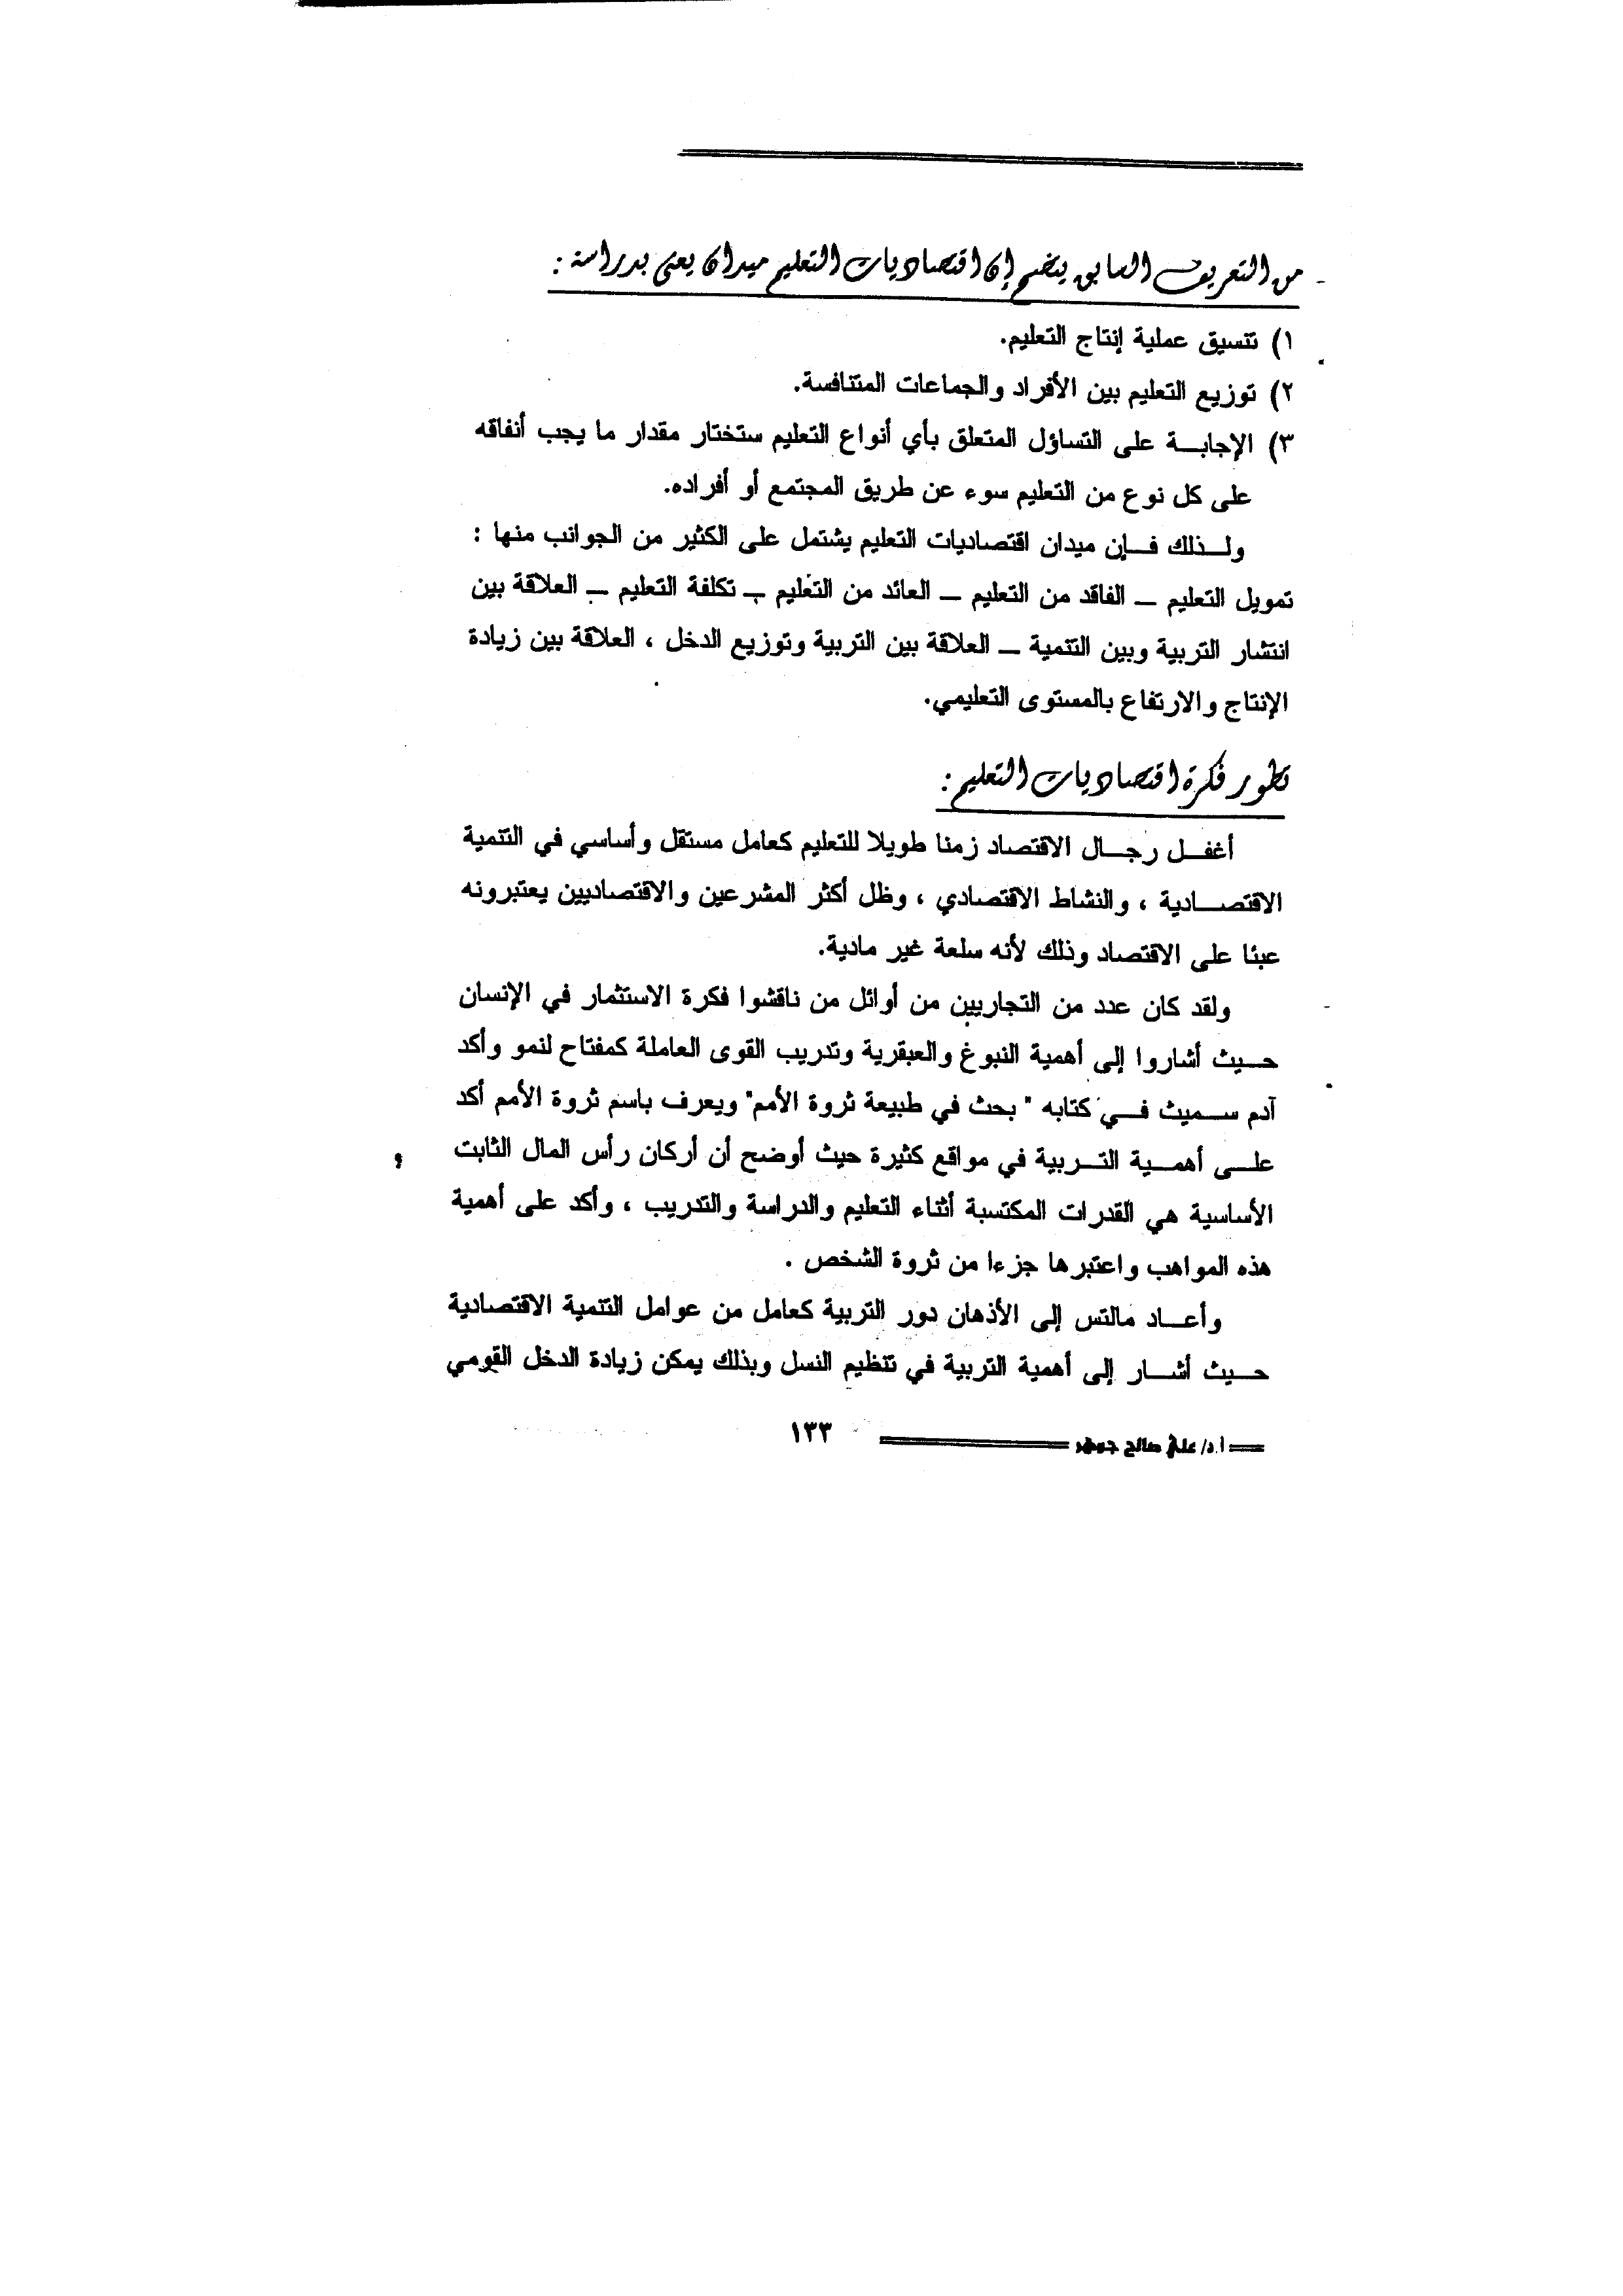 من التعريف السابق يتضح إن اقتصاديات التعليم ميدان يعنى بدراسة :
١) تنسيق عملية إنتاج التعليم.
٢) توزيع التعليم بين الأفراد والجماعات المتنافسة.
٣) الإجابة على التساؤل المتعلق بأي أنواع التعليم ستختار مقدار ما يجب أنفاقه
على كل نوع من التعليم سوء عن طريق المجتمع أو أفراده.
ولذلك فإن ميدان اقتصاديات التعليم يشتمل على الكثير من الجوانب منها :
تمويل التعليم – الفاقد من التعليم – العائد من التعليم – تكلفة التعليم – العلاقة بين
انتشار التربية وبين التنمية – العلاقة بين التربية وتوزيع الدخل ، العلاقة بين زيادة
الإنتاج والارتفاع بالمستوى التعليمي.
تطور فكرة اقتصاديات التعليم :
أغفل رجال الاقتصاد زمنا طويلا للتعليم كعامل مستقل وأساسي في التنمية
الاقتصادية ، والنشاط الاقتصادي ، وظل أكثر المشرعين والاقتصاديين يعتبرونه
عبئا على الاقتصاد وذلك لأنه سلعة غير مادية.
ولقد كان عدد من التجاريين من أوائل من ناقشوا فكرة الاستثمار في الإنسان
حيث أشاروا إلى أهمية النبوغ والعبقرية وتدريب القوى العاملة كمفتاح لنمو وأكد
آدم سميث في كتابه " بحث في طبيعة ثروة الأمم" ويعرف باسم ثروة الأمم أكد
على أهمية التربية في مواقع كثيرة حيث أوضح أن أركان رأس المال الثابت
الأساسية هي القدرات المكتسبة أثناء التعليم والدراسة والتدريب ، وأكد على أهمية
هذه المواهب واعتبرها جزءا من ثروة الشخص .
وأعاد مالتس إلى الأذهان دور التربية كعامل من عوامل التنمية الاقتصادية
حيث أشار إلى أهمية التربية في تنظيم النسل وبذلك يمكن زيادة الدخل القومي
أ.د/ علي صالح جوهر ١٣٣